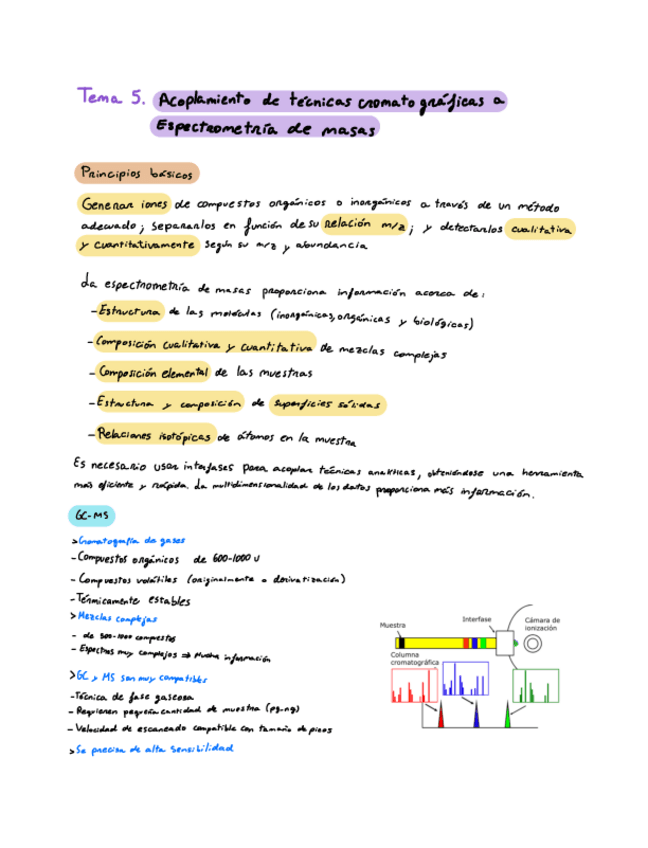 Tema 5. Acoplamiento de técnicas cromatográficas a
Espectrometría de masas
Principios básicos
Generar iones de compuestos orgánicos o inorgánicos a través de un método
adecuado; separarlos en función de su relación m/z; y detectarlos cualitativa
y cuantitativamente según su m/z y abundancia
La espectrometría de masas proporciona información acerca de:
- Estructura de las moléculas (inorgánicas, orgánicas y biológicas)
- Composición cualitativa y cuantitativa de mezclas complejas
- Composición elemental de las muestras
- Estructura y composición de superficies sólidas
- Relaciones isotópicas de átomos en la muestra
Es necesario usar interfases para acoplar técnicas analíticas, obteniéndose una herramienta
más eficiente y rápida. La multidimensionalidad de los datos proporciona más información.
GC-MS
> Cromatografía de gases
- Compuestos orgánicos de 600-1000 u
- Compuestos volátiles (originalmente o derivatización)
- Térmicamente estables
> Mezclas complejas
- de 500-1000 compuestos
- Espectros muy complejos ⇒ Mucha información
> GC y MS son muy compatibles
- Técnica de fase gaseosa
- Requieren pequeña cantidad de muestra (pg-ng)
- Velocidad de escaneado compatible con tamaño de picos
> Se precisa de alta sensibilidad
Muestra
Interfase
Cámara de
ionización
Columna
cromatográfica